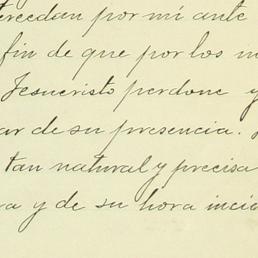 tercedan por mí ante
fin de que por los m
Jesucristo perdone y
ar de su presencia.
tan natural y precisa
ra y de su hora incie